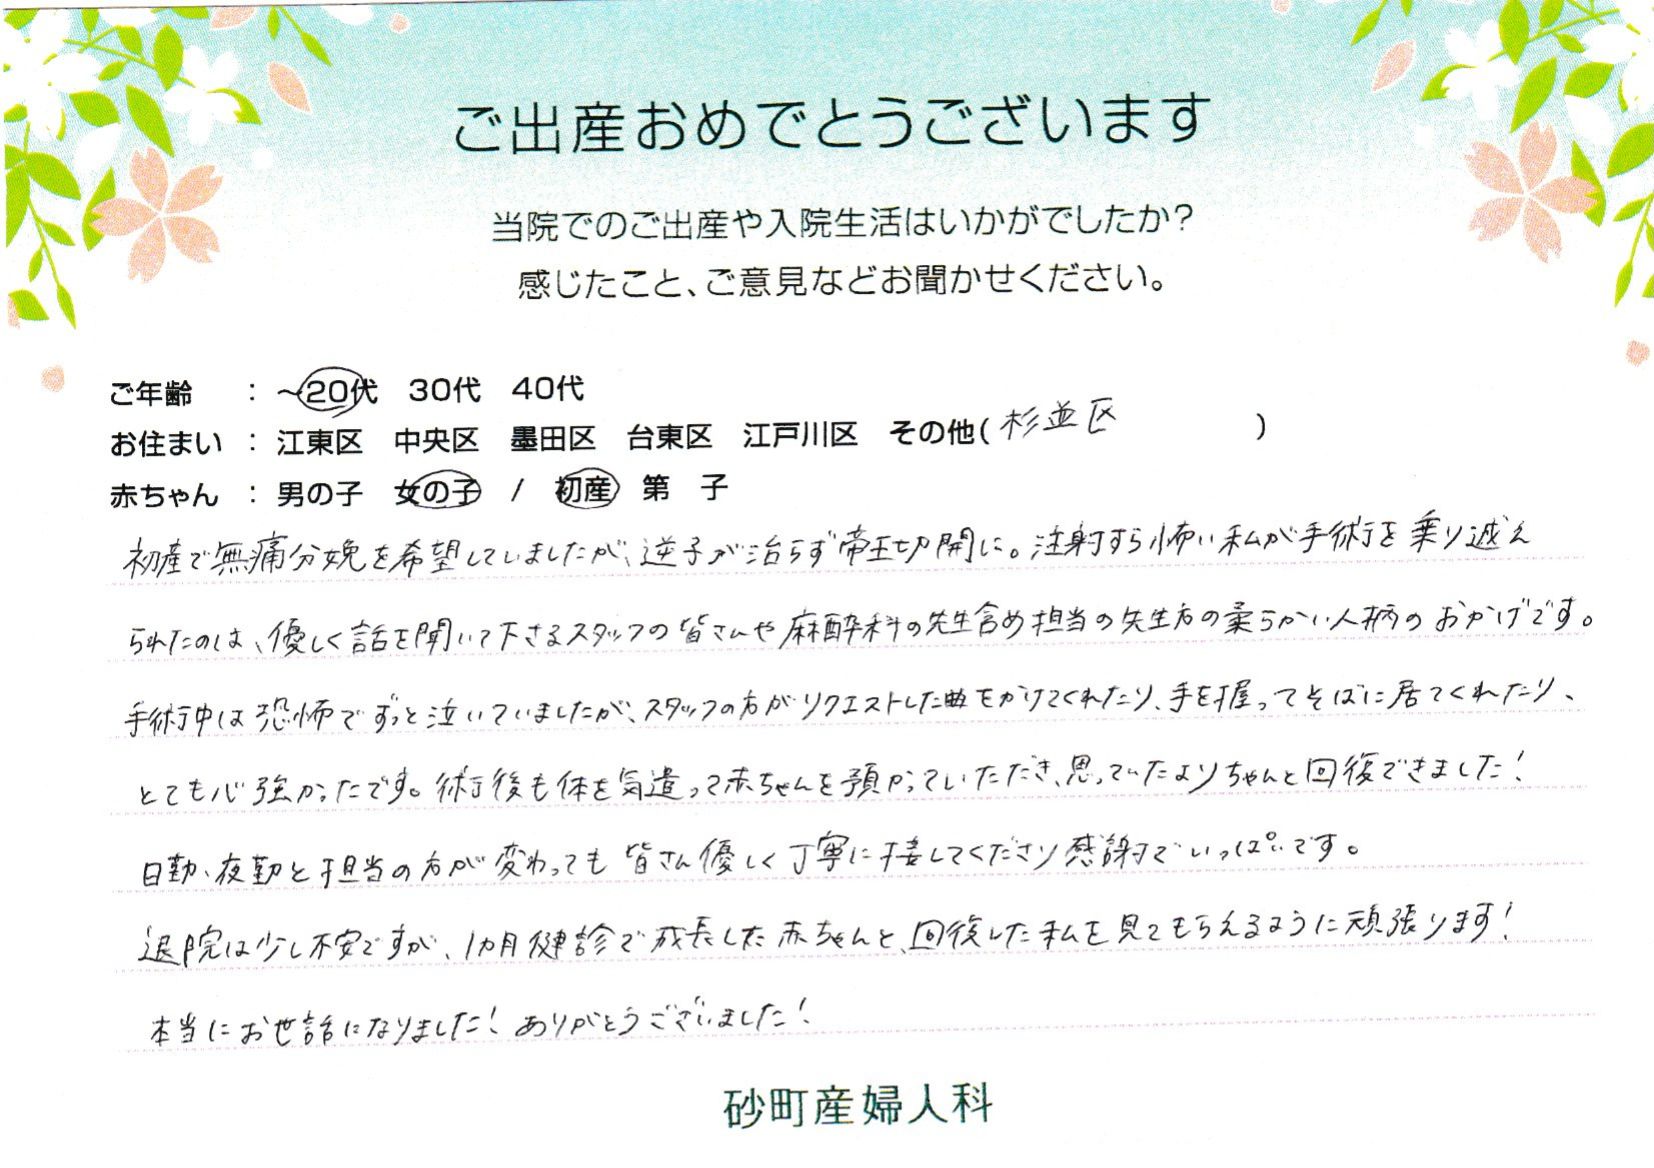 ご出産おめでとうございます
当院でのご出産や入院生活はいかがでしたか？
感じたこと、ご意見などお聞かせください。
ご年齢 ： ～20代 30代 40代
お住まい ： 江東区 中央区 墨田区 台東区 江戸川区 その他( 杉並区 )
赤ちゃん ： 男の子 女の子 / 初産 第 子
初産で無痛分娩を希望していましたが、逆子が治らず帝王切開に。注射すら怖い私が手術を乗り越え
られたのは、優しく話を聞いて下さるスタッフの皆さんや麻酔科の先生含め担当の先生方の柔らかい人柄のおかげです。
手術中は恐怖でずっと泣いていましたが、スタッフの方がリクエストした曲をかけてくれたり、手を握ってそばに居てくれたり、
とても心強かったです。術後も体を気遣って赤ちゃんを預かっていただき、思っていたよりちゃんと回復できました！
日勤、夜勤と担当の方が変わっても皆さん優しく丁寧に接してくださり感謝でいっぱいです。
退院は少し不安ですが、1カ月健診で成長した赤ちゃんと、回復した私を見てもらえるように頑張ります！
本当にお世話になりました！ありがとうございました！
砂町産婦人科